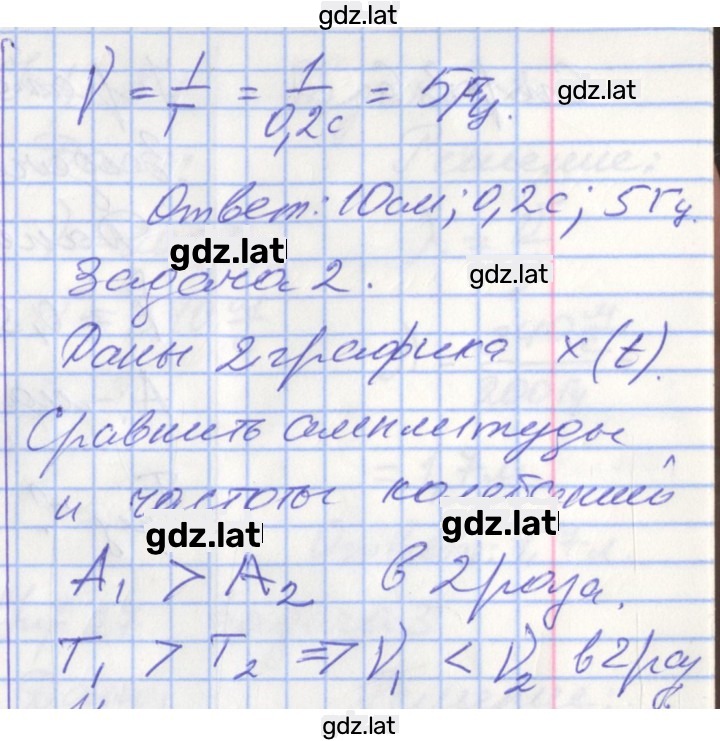 gdz.lat
ν = 1/T = 1/0,2с = 5Гц.
gdz.lat
Ответ: 10см; 0,2с; 5Гц.
gdz.lat
Задача 2.
gdz.lat
Даны 2 графика x(t).
Сравнить амплитуды
и частоты колебаний
gdz.lat
gdz.lat
A₁ > A₂ в 2 раза.
T₁ > T₂ ⇒ ν₁ < ν₂ в 2 раз
gdz.lat